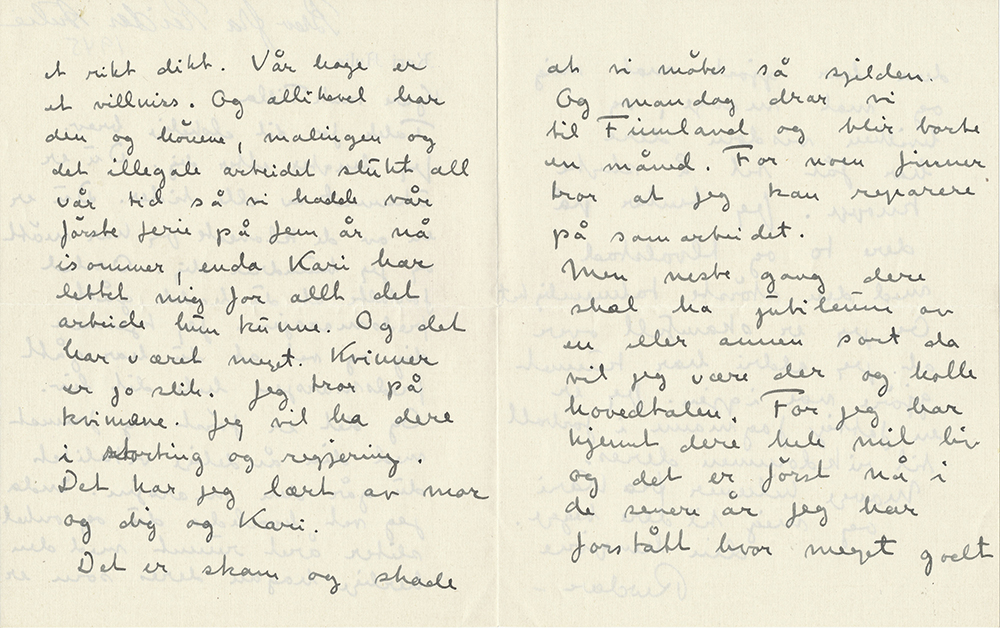 et rikt dikt. Vår hage er
et villniss. Og allikevel har
den og hönene, malingen og
det illegale arbeidet slukt all
vår tid så vi hadde vår
förste ferie på fem år nå
isommer, enda Kari har
lettet mig for allt det
arbeide hun kunne. Og det
har været meget. Kvinner
er jo slik. Jeg tror på
kvinnene. Jeg vil ha dere
i storting og regjering.
Det har jeg lært av mor
og dig og Kari.
Det er skam og skade
at vi möbes så sjelden.
Og mandag drar vi
til Finnland og blir borte
en månd. For noen finner
tror at jeg kan reparere
på samarbeidet.
Men neste gang dere
skal ha jubileum av
en eller annen sort da
vil jeg være der og holle
hovedtalen. For jeg har
kjennt dere hele mit liv
og det er först nå i
de senere år jeg har
forstått hvor meget godt